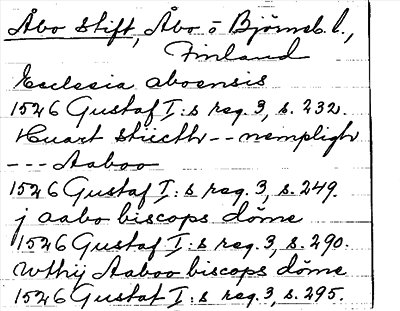 Åbo stift, Åbo o Björneb. l.,
Finland
Ecclesia aboensis
1526 Gustaf I:s reg. 3, s. 232.
Huart stiicth -- nempligh
--- Aaboo
1526 Gustaf I:s reg. 3, s. 249.
j aabo biscops döme
1526 Gustaf I:s reg. 3, s. 290.
wthij Aaboo biscops döme
1526 Gustaf I:s reg. 3, s. 295.